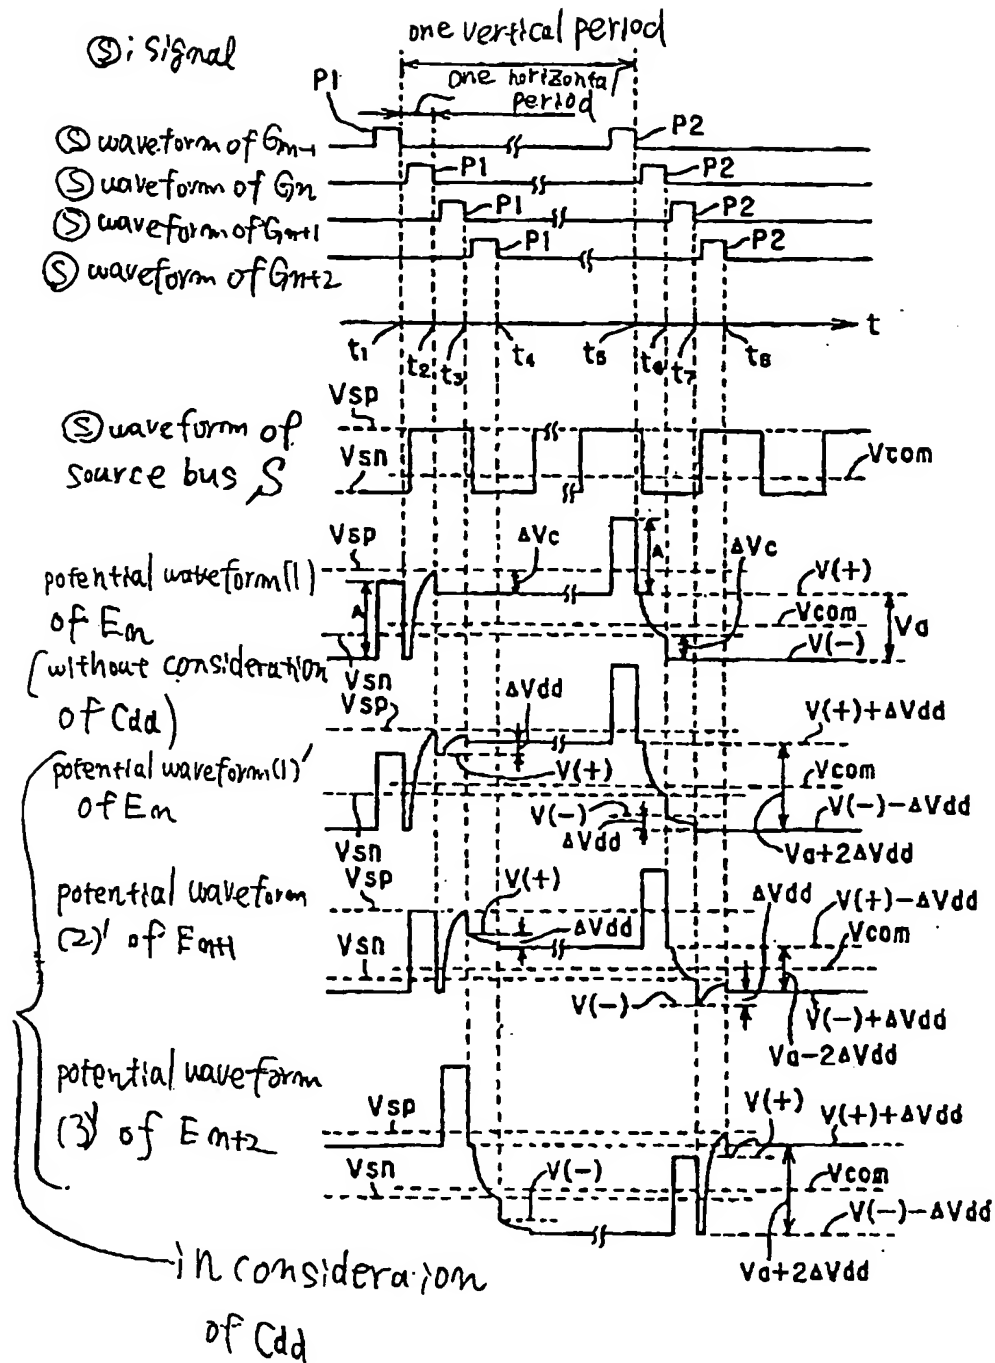 Ⓢ; signal
one vertical period
one horizontal period
P1
P2
Ⓢ waveform of Gn-1
P1
P2
Ⓢ waveform of Gn
P1
P2
Ⓢ waveform of Gn+1
P1
P2
Ⓢ waveform of Gn+2
t
t1
t2
t3
t4
t5
t6
t7
t8
Vsp
Ⓢ waveform of
source bus S
Vsn
Vcom
Vsp
ΔVc
A
ΔVc
potential waveform(1)
of En
(without consideration
of Cdd)
A
V(+)
Vcom
V(-)
Va
Vsn
Vsp
ΔVdd
V(+)+ΔVdd
potential waveform(1)'
of En
V(+)
Vcom
V(-)
ΔVdd
V(-)-ΔVdd
Vsn
Va+2ΔVdd
Vsp
V(+)
ΔVdd
potential waveform
(2)' of En+1
ΔVdd
V(+)-ΔVdd
Vcom
Vsn
V(-)
V(-)+ΔVdd
Va-2ΔVdd
potential waveform
(3)' of En+2
Vsp
V(+)
V(+)+ΔVdd
Vsn
V(-)
Vcom
V(-)-ΔVdd
Va+2ΔVdd
in consideration
of Cdd